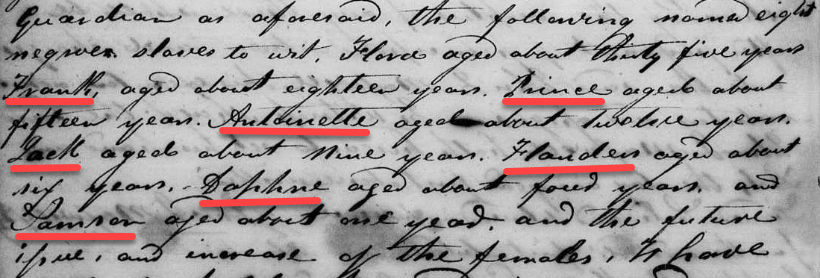 Guardian as aforesaid, the following named eight
negroes slaves to wit. Flora aged about thirty five years
Frank, aged about eighteen years. Prince aged about
fifteen years. Antoinette aged about twelve years.
Jack aged about nine years. Flanders aged about
six years. Daphne aged about four years. and
Samson aged about one year, and the future
issue, and increase of the females, To have